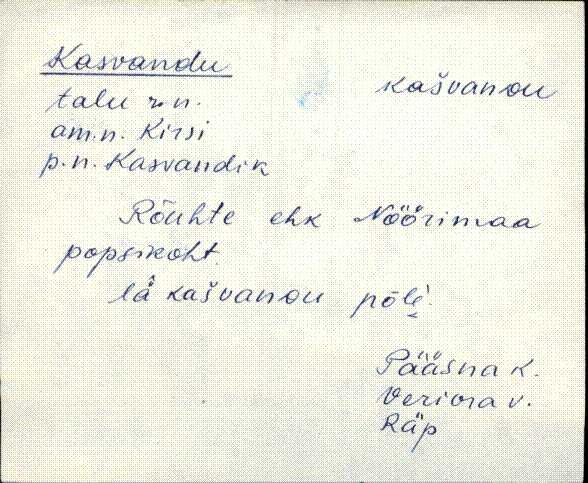 Kasvandu
kašvanDu
talu r.n.
am.n. Kirsi
p.n. Kasvandik
Rõuhte ehk Nöörimaa
popsikoht.
lä̂ kašvanDu põlé.
Pääsna k.
Veriora v.
Räp